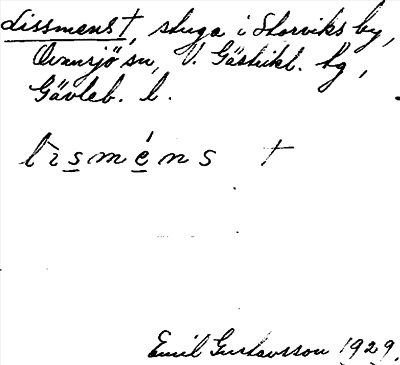 Lissmens †, stuga i Storviks by,
Ovansjö sn, V. Gästrikl. hg,
Gävleb. l.
lìsméns †
Emil Gustavsson 1929.